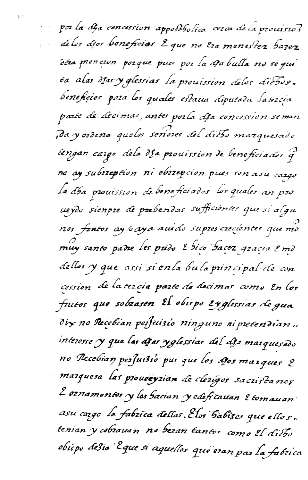 por la d̃ha concession appostholica cerca de la provision
de los dhos beneficios E que no Era menester hazer
otra mencion porque pues por la d̃ha bulla no se qui
ta a las d̃has yglessias la provission de los dichos
beneficios para los quales estava diputada la tercia
parte de decimas, antes por la d̃ha concession se man
da y ordena que los señores del dicho marquesado
tengan cargo de la d̃ha provission de beneficiados q̃
no ay subrreption ni obrrepcion pues con su cargo
la d̃ha provission de beneficiados los quales an pro
veydo siempre de prebendas sufficientes que si algu
nos frutos ay o aya avido supercrecientes que n̄ro
muy santo padre les pudo E hico hacer gracia E md̃
dellos y que assi si en la bula principal de con
cession de la tercia parte de decimas como En los
frutos que sobrasen El obispo E yglessias de gua
dix no Recebian perjuizio ninguno ni pretendian
interesse y que las d̃has yglessias del d̃ho marquesado
no Recebian perjuizio pues que los d̃hos marques E
marquesa las proveeyrian de clerigos sacristanes
E ornamentos y los hacian y edificavan E tomavan
a su cargo la fabrica dellas. E los habices que ellos
tenian y cobravan no heran tantos como El dicho
obispo dezia E que si aquellos que eran para la fabrica